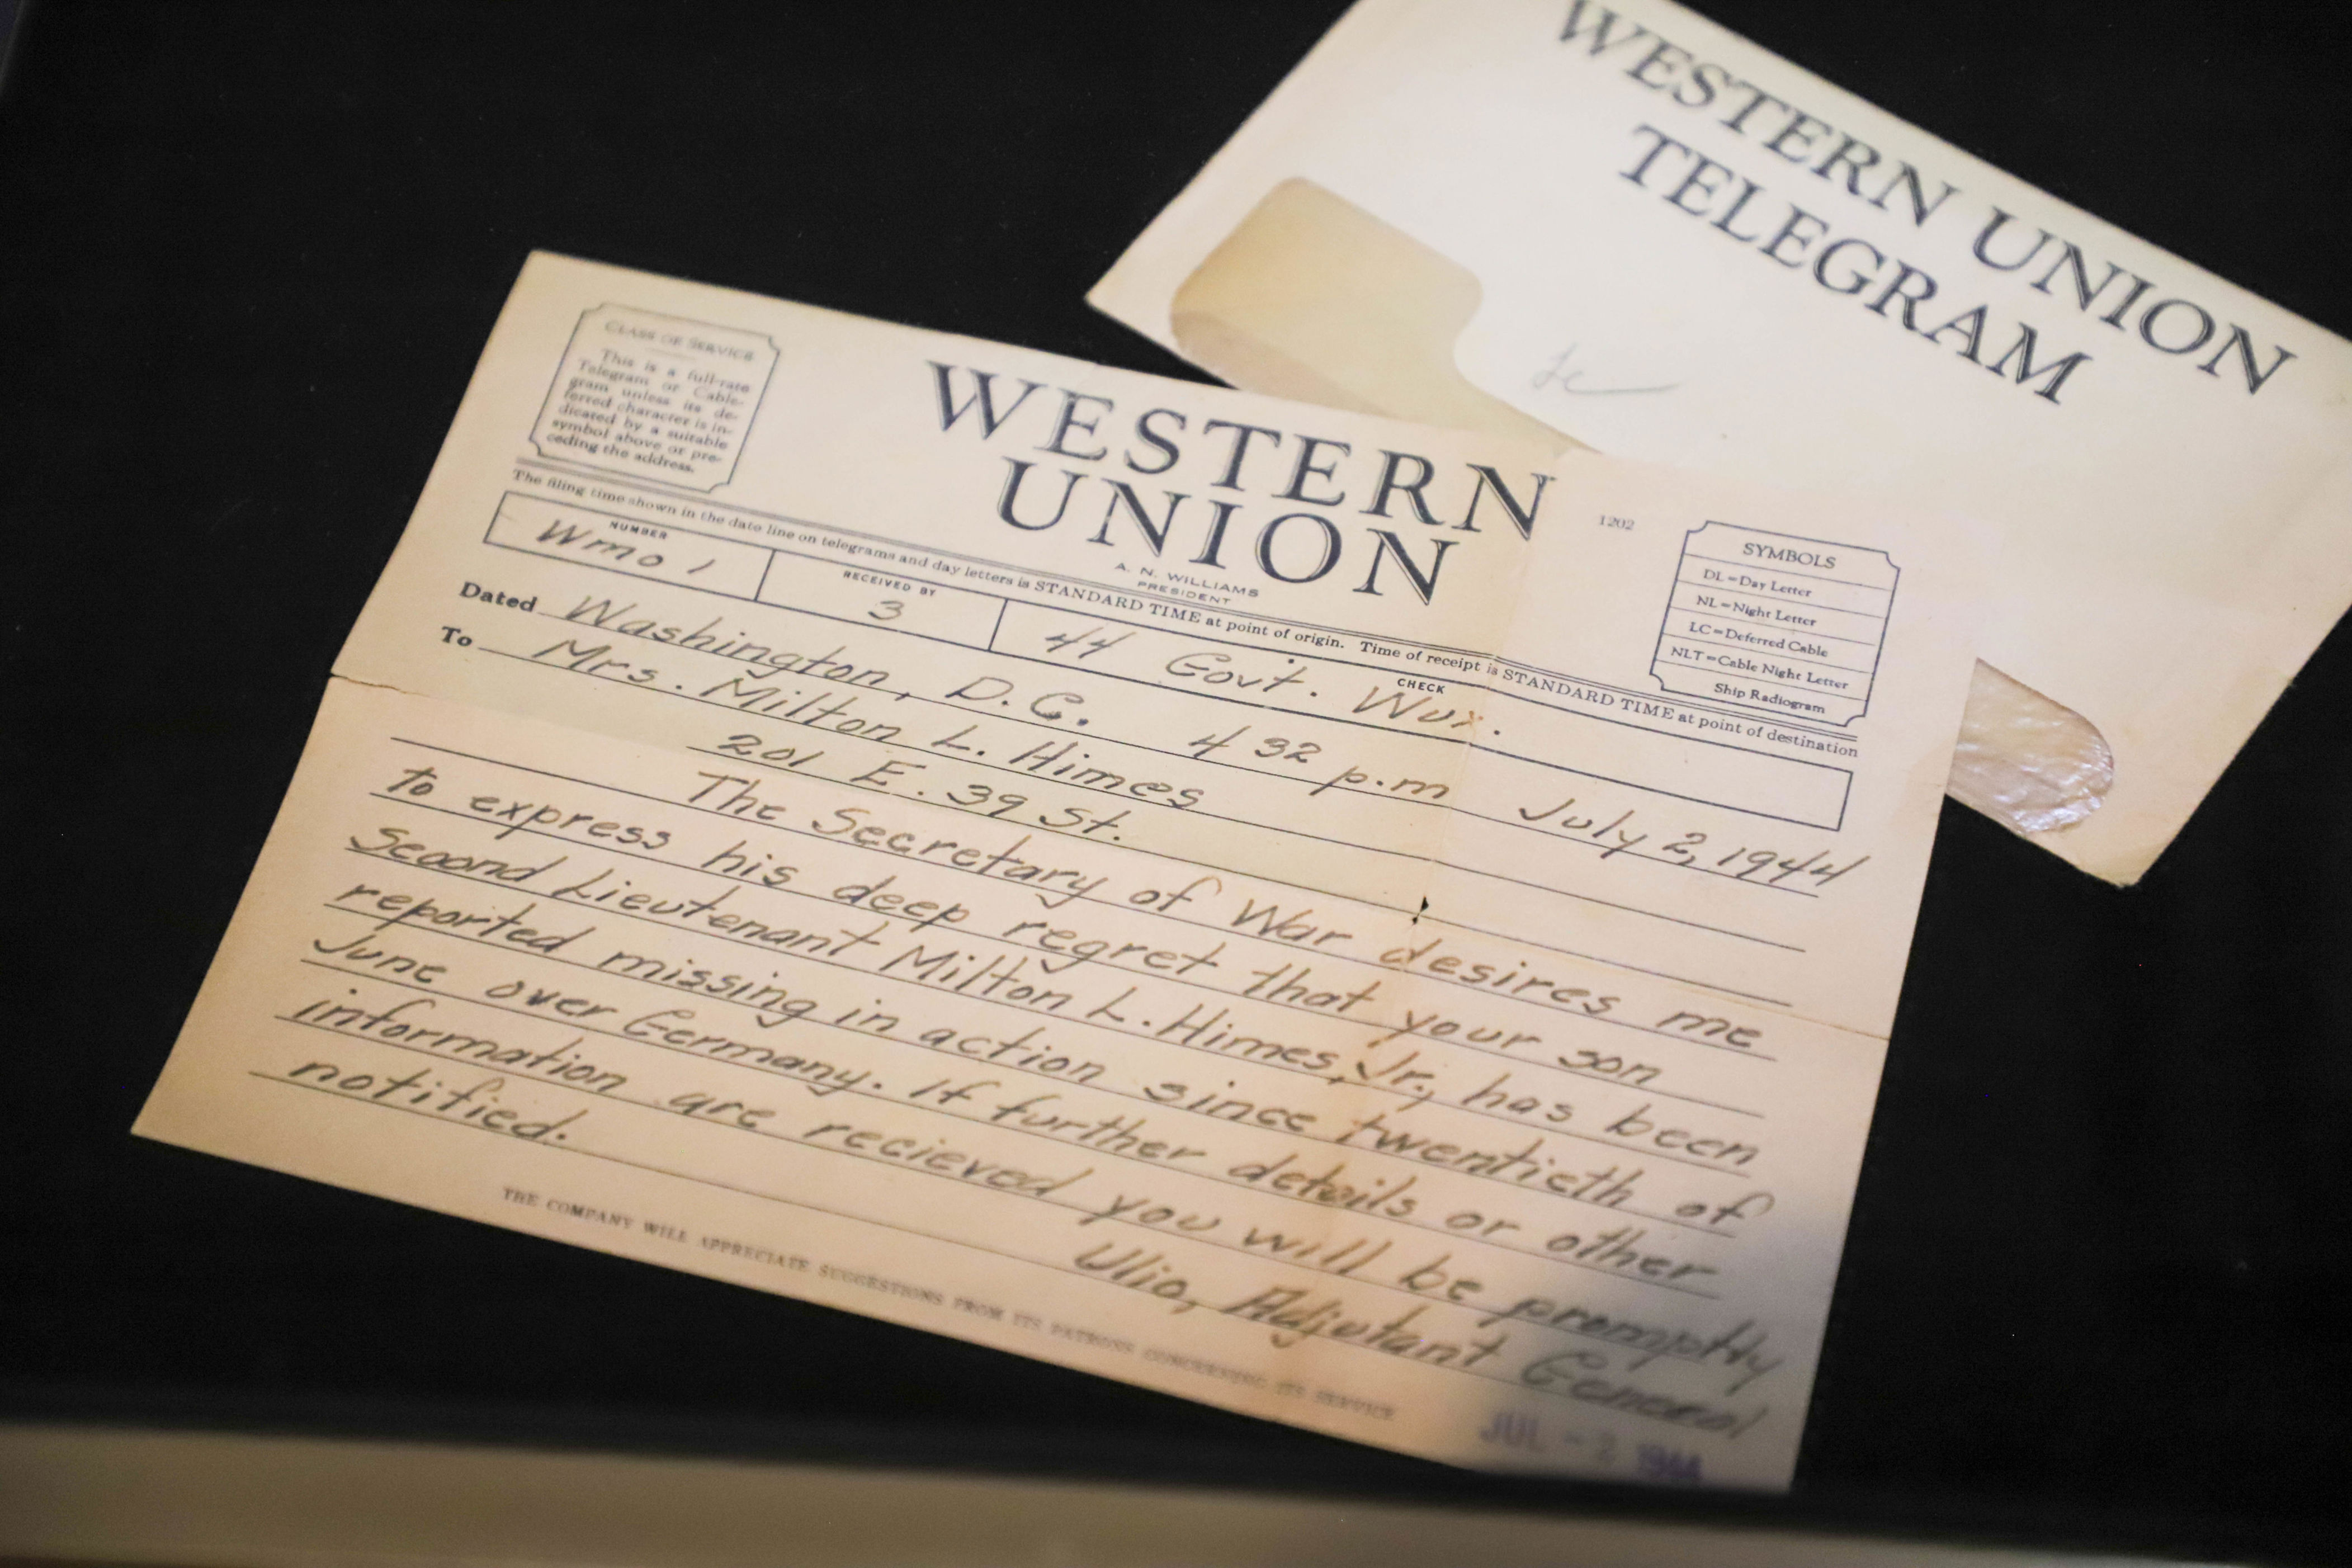 WESTERN UNION
TELEGRAM
CLASS OF SERVICE
This is a full-rate
Telegram or Cable-
gram unless its de-
ferred character is in-
dicated by a suitable
symbol above or pre-
ceding the address.
WESTERN
UNION
A. N. WILLIAMS
PRESIDENT
1202
SYMBOLS
DL=Day Letter
NL=Night Letter
LC=Deferred Cable
NLT=Cable Night Letter
Ship Radiogram
The filing time shown in the date line on telegrams and day letters is STANDARD TIME at point of origin. Time of receipt is STANDARD TIME at point of destination
NUMBER
Wmo 1
RECEIVED BY
3
CHECK
44 Govt. Wux.
Dated Washington, D.C. 4 32 p.m July 2, 1944
To Mrs. Milton L. Himes
201 E. 39 St.
The Secretary of War desires me
to express his deep regret that your son
Second Lieutenant Milton L. Himes, Jr., has been
reported missing in action since twentieth of
June over Germany. If further details or other
information are recieved you will be promptly
notified.
Ulio, Adjutant General
THE COMPANY WILL APPRECIATE SUGGESTIONS FROM ITS PATRONS CONCERNING ITS SERVICE
JUL - 2 1944